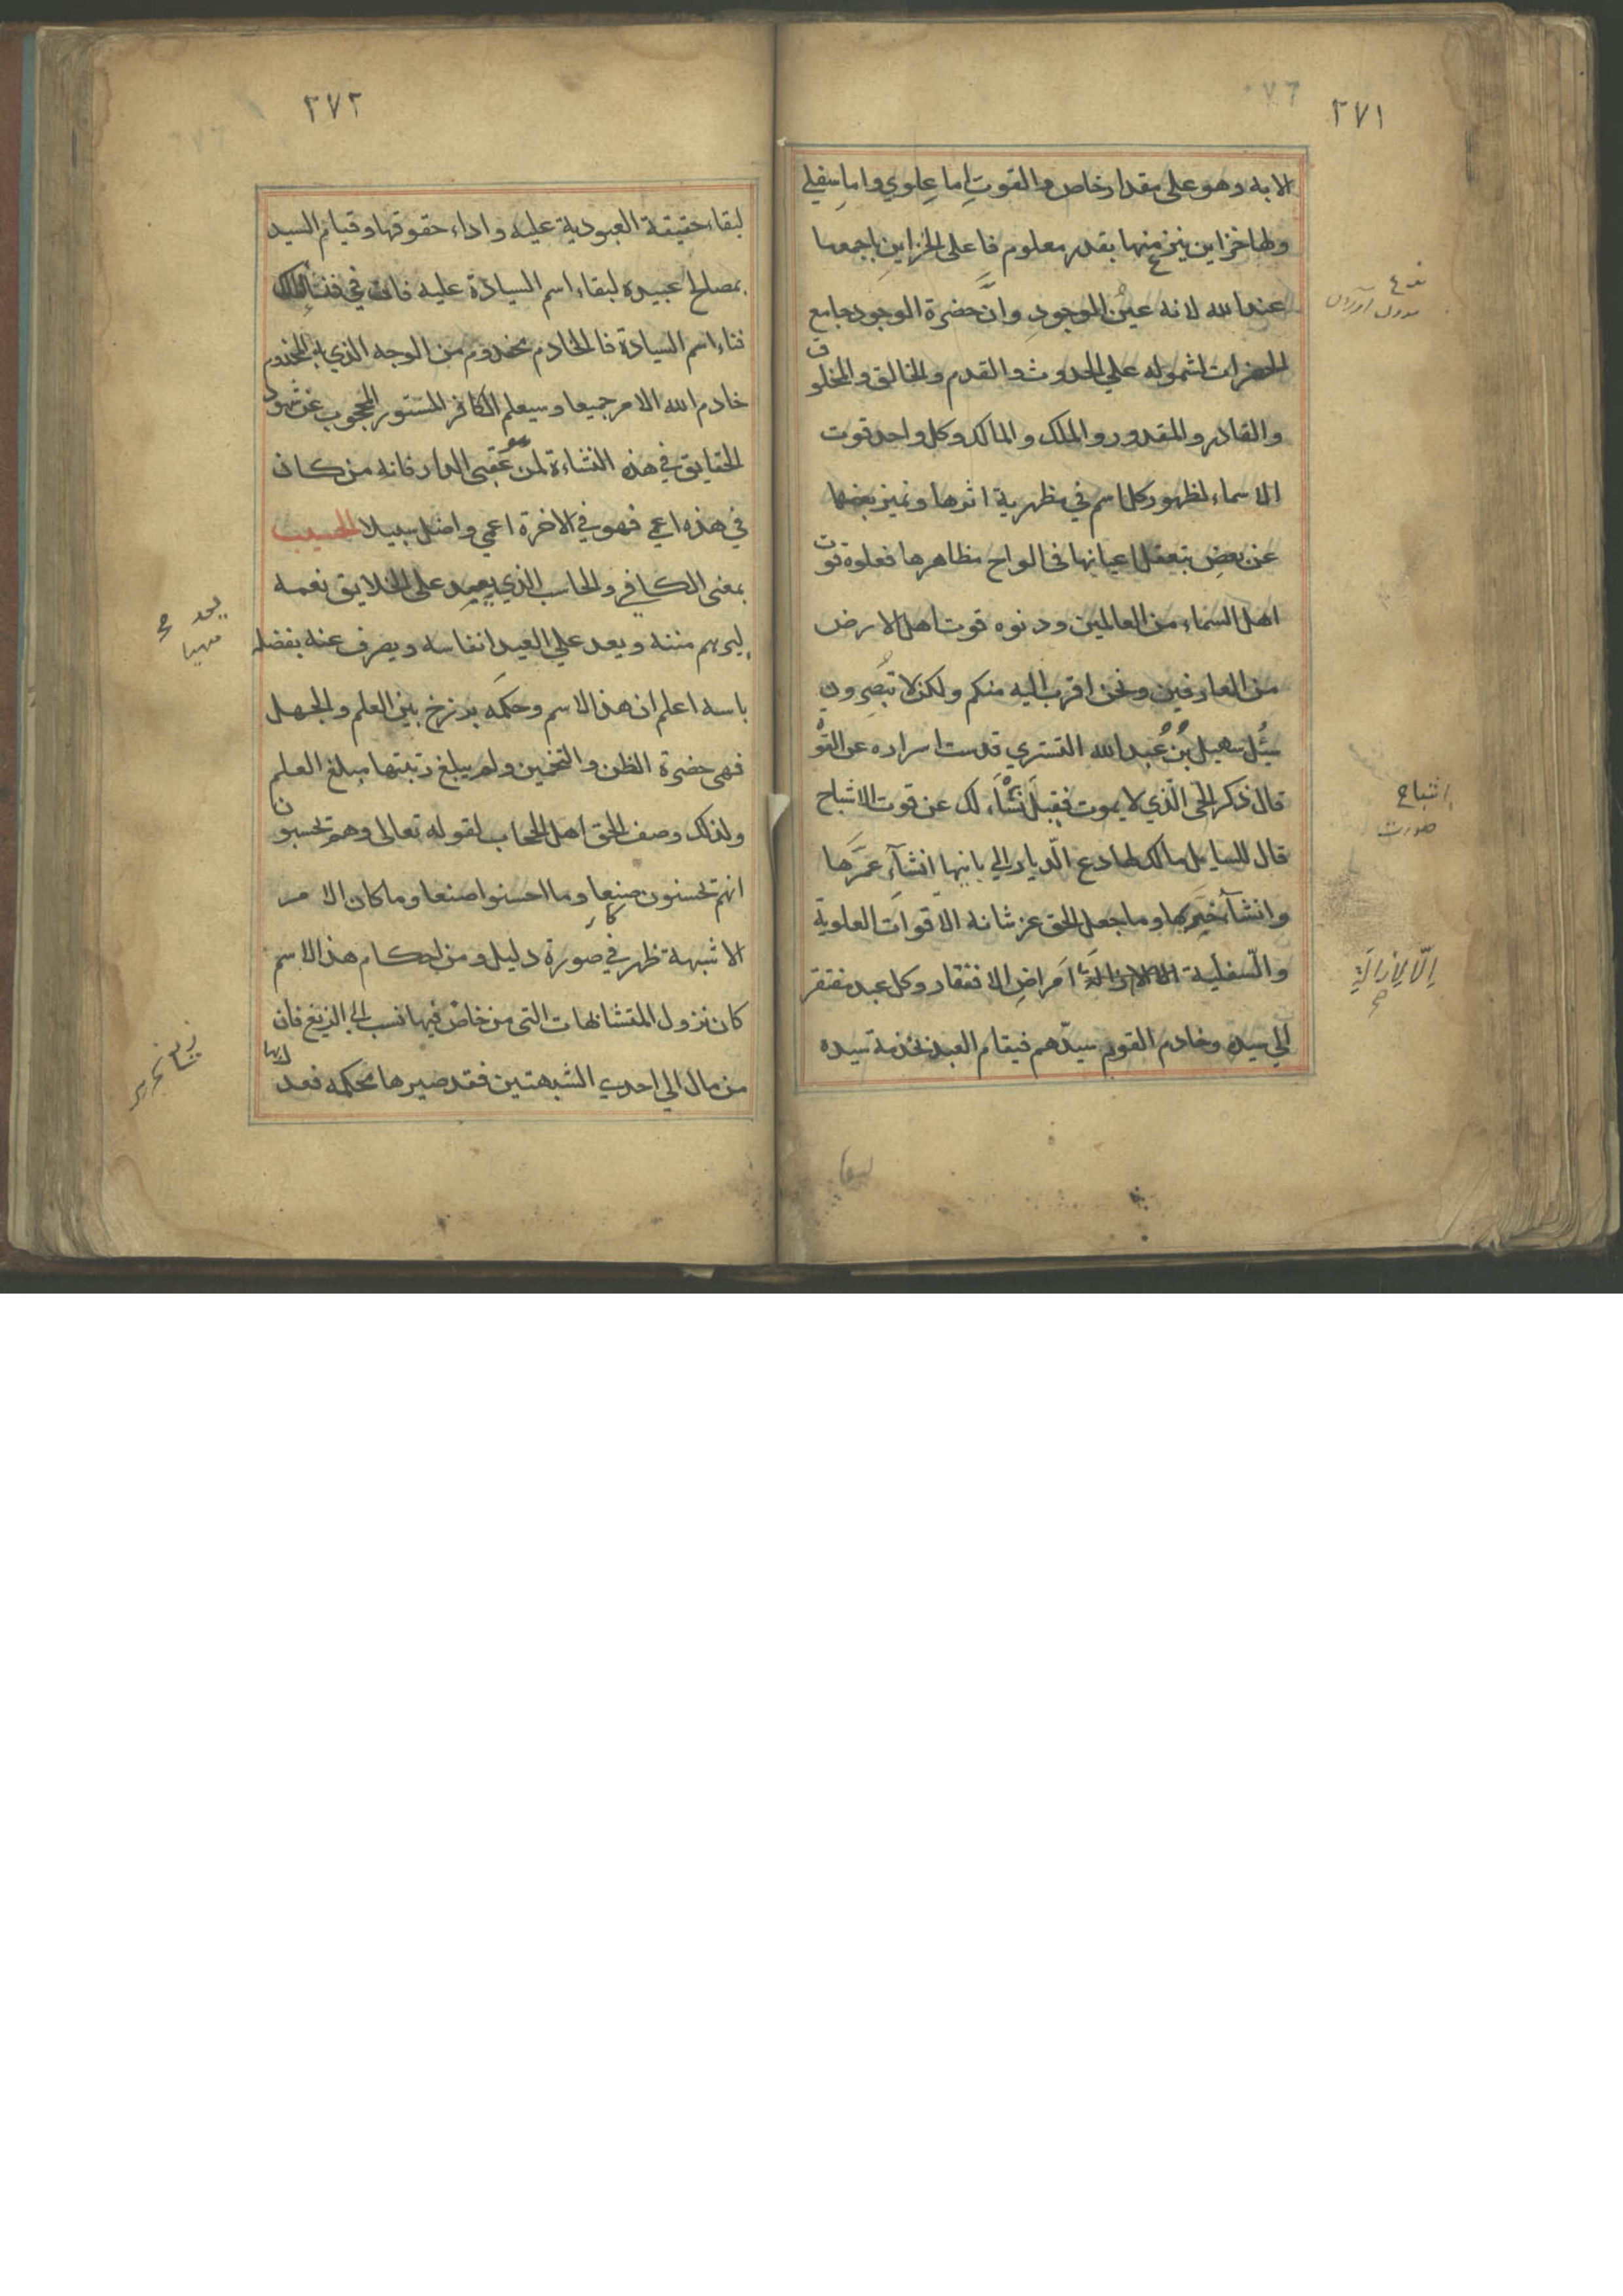 ٣٧١
الا به وهو على مقدار خاص والقوت اِما عِلوي واما سِفلي
ولها خزاين ينزع منها بقدر معلوم فاعلى الخزاين باجمعها
عند الله لانه عينُ الموجودِ وانَّ حضرة الوجود جامع
الحضرات لشموله علي الحدوث والقدم والخالق والمخلوق
والقادر والمقدور والملك والمالك وكل واحد قوت
الاسماء لظهور كل اسم في مظهرية اثرها وتميز بعضها
عن بعضِ بتعقل اعيانها فى الواح مظاهرها فعلوه قوت
اهل السماء من العالمين ودنوه قوت اهل الارض
من العارفين ونحن اقرب اليه منكم ولكن لا تُبصِرون
سُئِل سهيل بنُ عُبد الله التستري قدست اسراره عن القوْ
قال ذكر الحَي الّذي لا يموت فقيل نَسْاَء لك عن قوت الاشباح
قال للسايل مالك لها دع الّديار الي بانيها انشآء عمَّرها
وانشآء خيربها وما جعل الحق عز شانه الاقوات العلوية
والسّفلية الا لازالة امَراضِ الافتقار وكل عبد مفتقر
الي سيده وخادم القوم سيدّهم فيقام العبد بخدمة سيده
اشباح
صورت
اِلّا لِاِزالَةِ
صح
٣٧٢
لبقاء حقيقة العبودية عليه واداء حقوقها وقيام السيد
بمصالح عبيده لبقاء اسم السيادة عليه فان في فناء الملك
فناء اسم السيادة فالخادم مخدوم من الوجه الذي به المخدوم
خادم لله الامر جميعا وسيعلم الكافر المستور المحجوب عن شهود
الحقايق في هذه النشاءة لمن عقبى الدار فانه من كان
في هذه اعمي فهو في الاخرة اعمي واضل سبيلا الحسيب
بمعنى الكافي والحاسب الذي يعد على الخلايق نعمه
ليريهم مننه ويعد علي العبد انفاسه ويصرف عنه بفضله
باسه اعلم ان هذا الاسم وحكمَه برزخ بين العلم والجهل
فهى حضرة الظن والتخمين ولم يبلغ رتبتها مبلغ العلم
ولذلك وصف الحق اهل الحجاب لقوله تعالى وهم تحسبون
انهم تحسنون صنعا وما احسنوا صنعا وما كان الامر
الا شبهة ظهر في صورة دليل ومن احكام هذا الاسم
كان نزول المتشابهات التى من خاض فيها نسب الي الزيغ فان
من مال الي احدي الشبهتين فقد صيرها محكمه فعدل بها